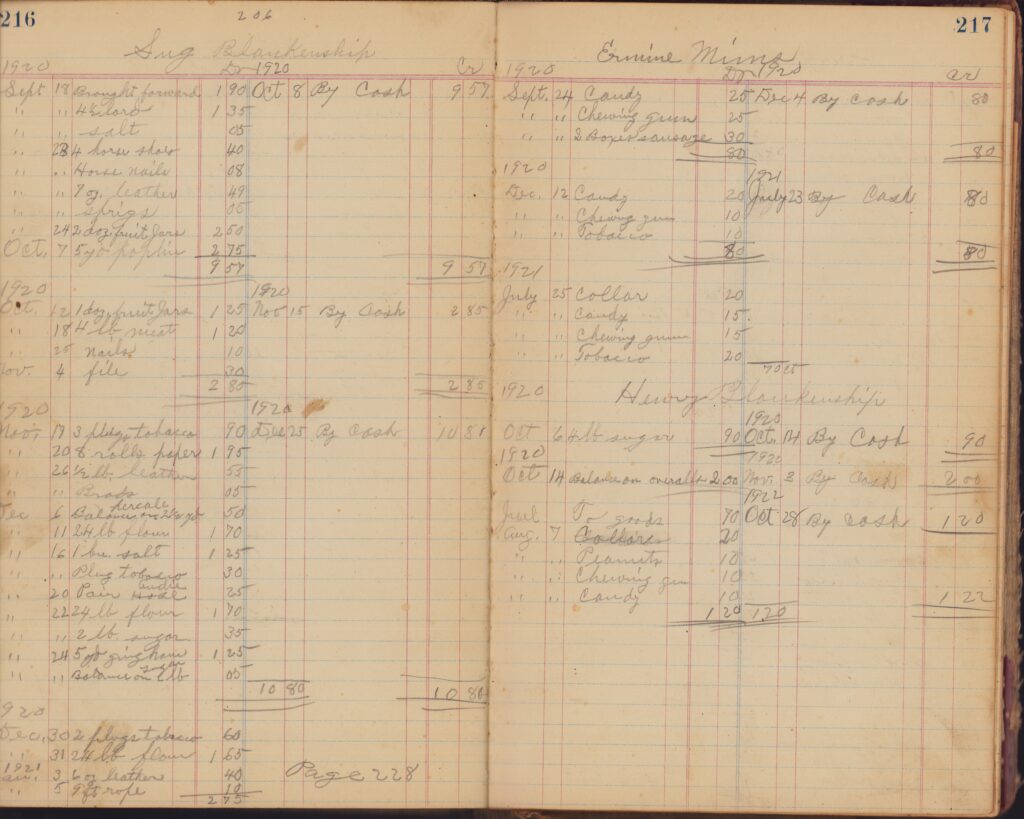 216
206
Sug Blankenship
1920 Dr 1920 Cr
Sept 18 Brought forward 1 90 Oct 8 By Cash 9 57
" " 4½ 1 35
" " salt 05
" 23 4 horse shoes 40
" " Horse nails 08
" " 7 oz. leather 49
" " sprigs 05
" 24 2 doz fruit Jars 2 50
Oct. 7 5 yd poplin 2 75
9 57 9 57
1920 1920
Oct. 12 1 doz fruit Jars 1 25 Nov 15 By Cash 2 85
" 18 4 lb meat 1 20
" 25 nails 10
Nov. 4 file 30
2 85 2 85
1920 1920
Nov. 17 3 plugs tobacco 90 Dec 25 By Cash 10 80
" 20 8 rolls paper 1 95
" 26 ½ lb. leather 55
" " Brads 05
Dec 6 Balance on percale 50
" 11 24 lb flour 1 70
" 16 1 bu. salt 1 25
" " Plug tobacco 30
" 20 Pair hose 25
" 22 24 lb flour 1 70
" " 2 lb. sugar 35
" 24 5 yd gingham 1 25
" " Balance on sugar 05
10 80 10 80
1920
Dec. 30 2 plugs tobacco 60
" 31 24 lb flour 1 65
1921
Jan. 3 6 oz leather 40 Page 228
" 5 9 ft rope 10
2 75
217
Ermine Mims
1920 Dr 1920 Cr
Sept. 24 Candy 25 Dec 4 By Cash 80
" " Chewing gum 25
" " 2 Boxes sausage 30
80 80
1920 1921
Dec. 12 Candy 20 July 23 By Cash 80
" " Chewing gum 10
" " Tobacco 10
80 80
1921
July 25 Collar 20
" " Candy 15
" " Chewing gum 15
" " Tobacco 20
70
1920 Henry Blankenship
1920
Oct 6 4 lb sugar 90 Oct. 14 By Cash 90
1920 1920
Oct 14 Balance on overalls 2 00 Nov. 3 By Cash 2 00
1922
To goods 70 Oct 28 By Cash 1 20
Aug. 7 Collars 20
" " Peanuts 10
" " Chewing gum 10
" " Candy 10 1 22
1 20 1 20